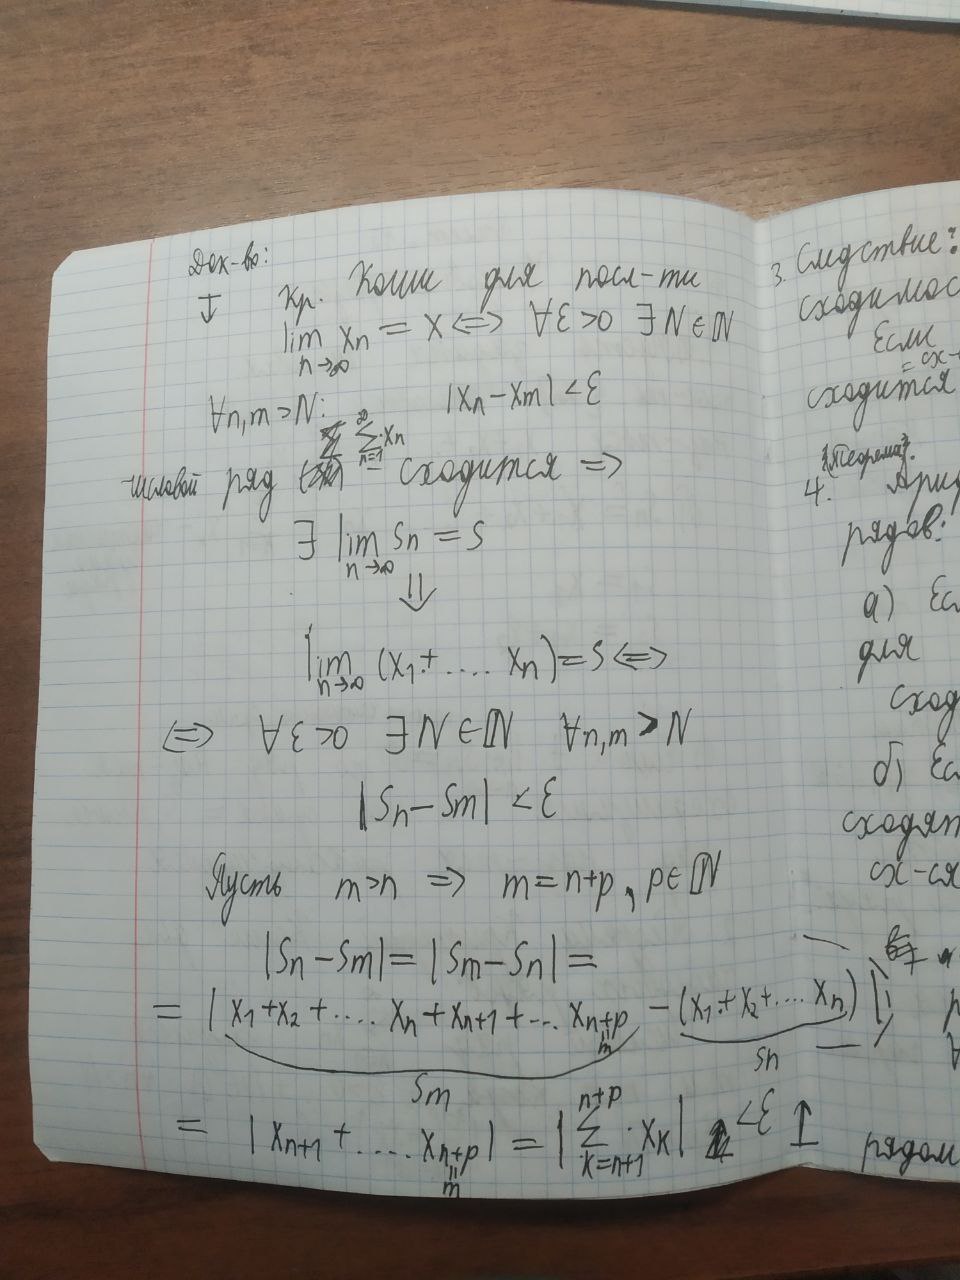 Док-во:
↓ Кр. Коши для посл-ти
lim xₙ = x ⟺ ∀ε>0 ∃N∈ℕ
n→∞
∀n,m>N: |xₙ-xₘ|<ε
∞
∑ xₙ
n=1
числовой ряд – сходится ⟹
∃ lim Sₙ = S
n→∞
⇓
lim (x₁+.... xₙ)=S⟺
n→∞
⟺ ∀ε>0 ∃N∈ℕ ∀n,m>N
|Sₙ-Sₘ| <ε
Пусть m>n ⟹ m=n+p, p∈ℕ
|Sₙ-Sₘ|=|Sₘ-Sₙ|=
= | x₁+x₂+.... xₙ+xₙ₊₁+... xₙ₊ₚ -(x₁+x₂+.... xₙ)|
= m
Sₘ Sₙ
= |xₙ₊₁+.... xₙ₊ₚ| = | ∑ xₖ | <ε ↑
n+p
k=n+1
= m
3. Следствие:
сходимос
Если
= сх-
сходится
{Теорема}.
4. Ариф
рядов:
а) Ес
для
сход
б) Ес
сходят
сх-ся
рядом